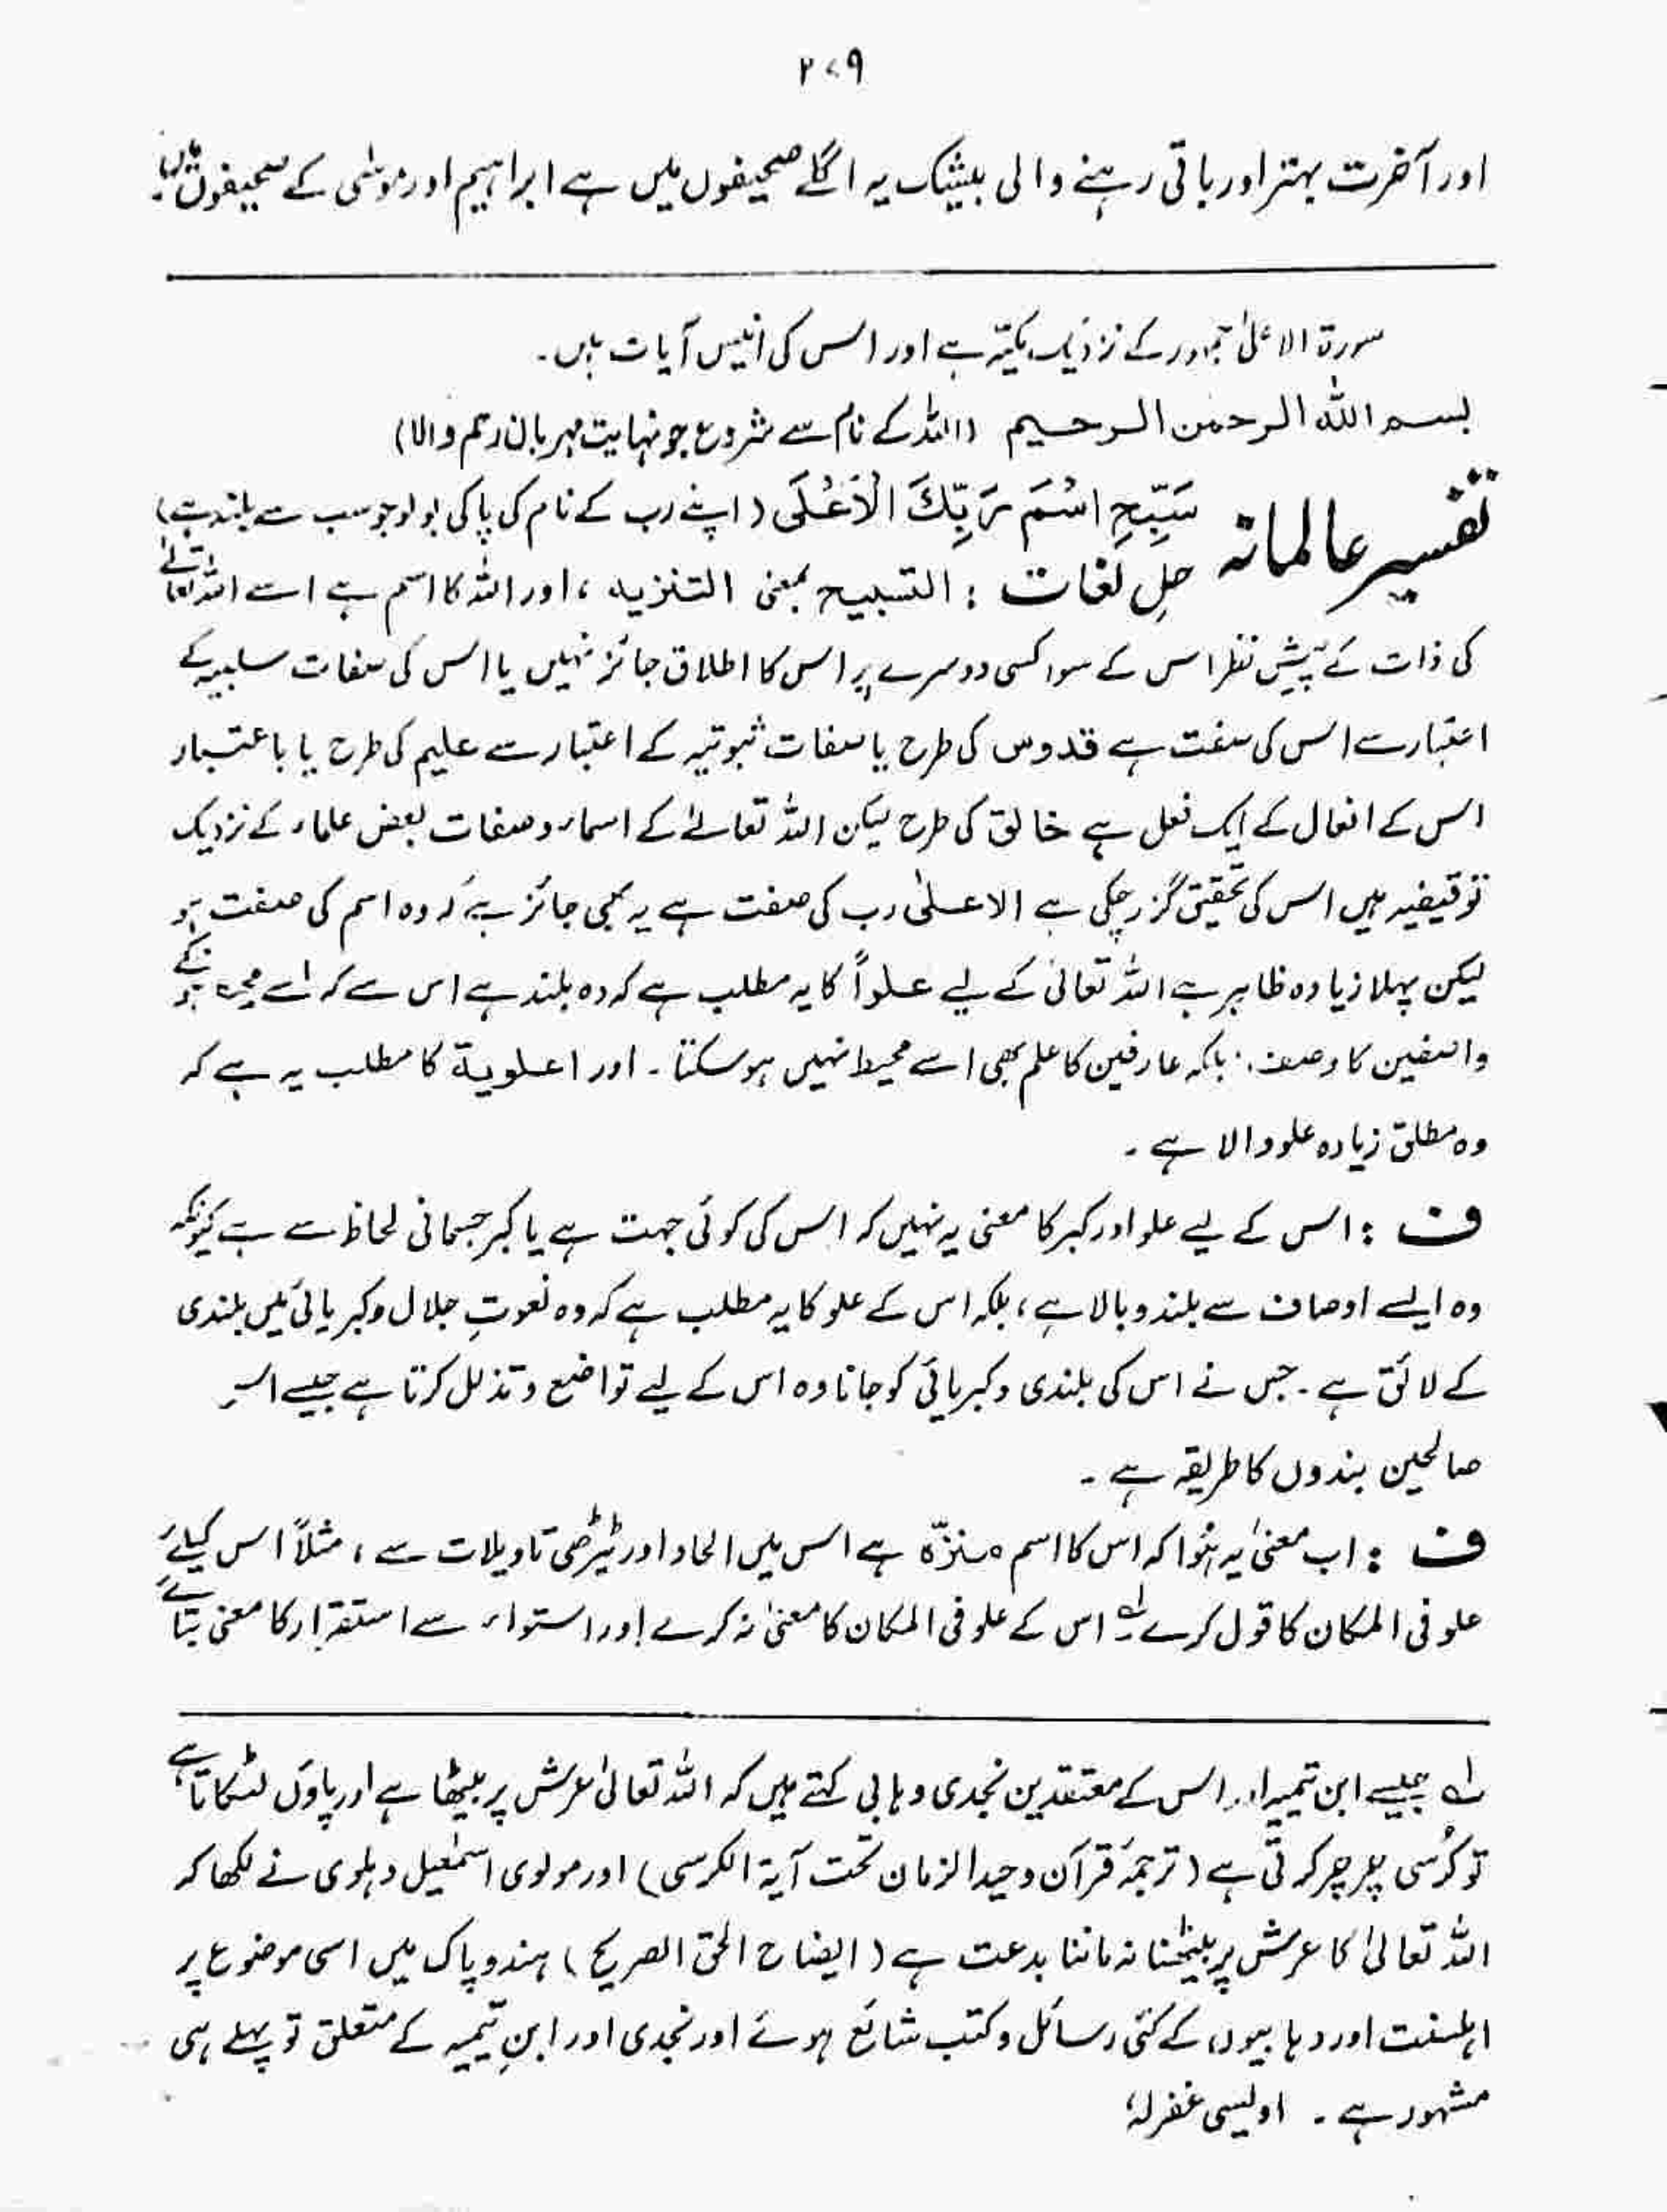 ۲۷۹
اور آخرت بہتر اور باقی رہنے والی بیشک یہ اگلے صحیفوں میں ہے ابراہیم اور موسٰی کے صحیفوں میں
سورۃ الاعلیٰ جمہور کے نزدیک مکیّہ ہے اور اس کی انیس آیات ہیں۔
بسم اللہ الرحمٰن الرحیم (اللہ کے نام سے شروع جو نہایت مہربان رحم والا)
تفسیر عالمانہ سَبِّحِ اسْمَ رَبِّكَ الْاَعْلَى (اپنے رب کے نام کی پاکی بولو جو سب سے بلند ہے)
حلِ لغات : التسبیح بمعنی التنزیہ ، اور اللہ کا اسم ہے اسے اللہ تعالٰے
کی ذات کے پیشِ نظر اس کے سوا کسی دوسرے پر اس کا اطلاق جائز نہیں یا اس کی صفات سلبیہ کے
اعتبار سے اس کی صفت ہے قدوس کی طرح یا صفات ثبوتیہ کے اعتبار سے علیم کی طرح یا باعتبار
اس کے افعال کے ایک فعل ہے خالق کی طرح لیکن اللہ تعالےٰ کے اسماء و صفات بعض علماء کے نزدیک
توقیفیہ ہیں اس کی تحقیق گزر چکی ہے الاعلٰی رب کی صفت ہے یہ بھی جائز ہے کہ وہ اسم کی صفت ہو
لیکن پہلا زیادہ ظاہر ہے اللہ تعالیٰ کے لیے علواً کا یہ مطلب ہے کہ وہ بلند ہے اس سے کہ اسے محیط ہو سکے
واصفین کا وصف، بلکہ عارفین کا علم بھی اسے محیط نہیں ہو سکتا۔ اور اعلویۃ کا مطلب یہ ہے کہ
وہ مطلق زیادہ علو والا ہے ۔
ف : اس کے لیے علو اور کبر کا معنی یہ نہیں کہ اس کی کوئی جہت ہے یا کبر جسمانی لحاظ سے ہے کیونکہ
وہ ایسے اوصاف سے بلند و بالا ہے ، بلکہ اس کے علو کا یہ مطلب ہے کہ وہ نعوتِ جلال و کبریائی میں بلندی
کے لائق ہے ۔ جس نے اس کی بلندی و کبریائی کو جانا وہ اس کے لیے تواضع و تذلل کرتا ہے جیسے اس کے
صالحین بندوں کا طریقہ ہے ۔
ف : اب معنیٰ یہ ہُوا کہ اس کا اسم منزّہ ہے اس میں الحاد اور ٹیڑھی تاویلات سے ، مثلاً اس کیلئے
علو فی المکان کا قول کرے لہ اس کے علو فی المکان کا معنیٰ نہ کرے اور استواء سے استقرار کا معنی بتائے
لہ جیسے ابن تیمیہ اور اس کے معتقدین نجدی وہابی کہتے ہیں کہ اللہ تعالیٰ عرش پر بیٹھا ہے اور پاؤں لٹکاتا ہے
تو کُرسی چرچر کرتی ہے (ترجمۂ قرآن وحید الزمان تحت آیۃ الکرسی) اور مولوی اسمٰعیل دہلوی نے لکھا کہ
اللہ تعالیٰ کا عرش پر بیٹھنا نہ ماننا بدعت ہے (ایضاح الحق الصریح) ہند و پاک میں اسی موضوع پر
اہلسنت اور وہابیوں کے کئی رسائل و کتب شائع ہوئے اور نجدی اور ابنِ تیمیہ کے متعلق تو پہلے ہی
مشہور ہے ۔ اویسی غفرلہٗ